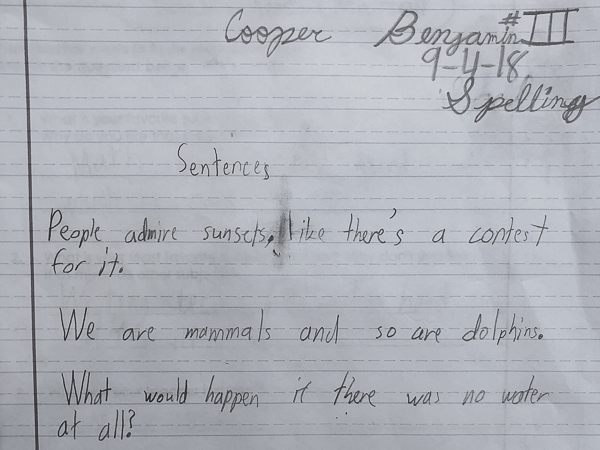 Cooper Benjamin #III
9-4-18
Spelling
Sentences
People admire sunsets, like there's a contest
for it.
We are mammals and so are dolphins.
What would happen if there was no water
at all?